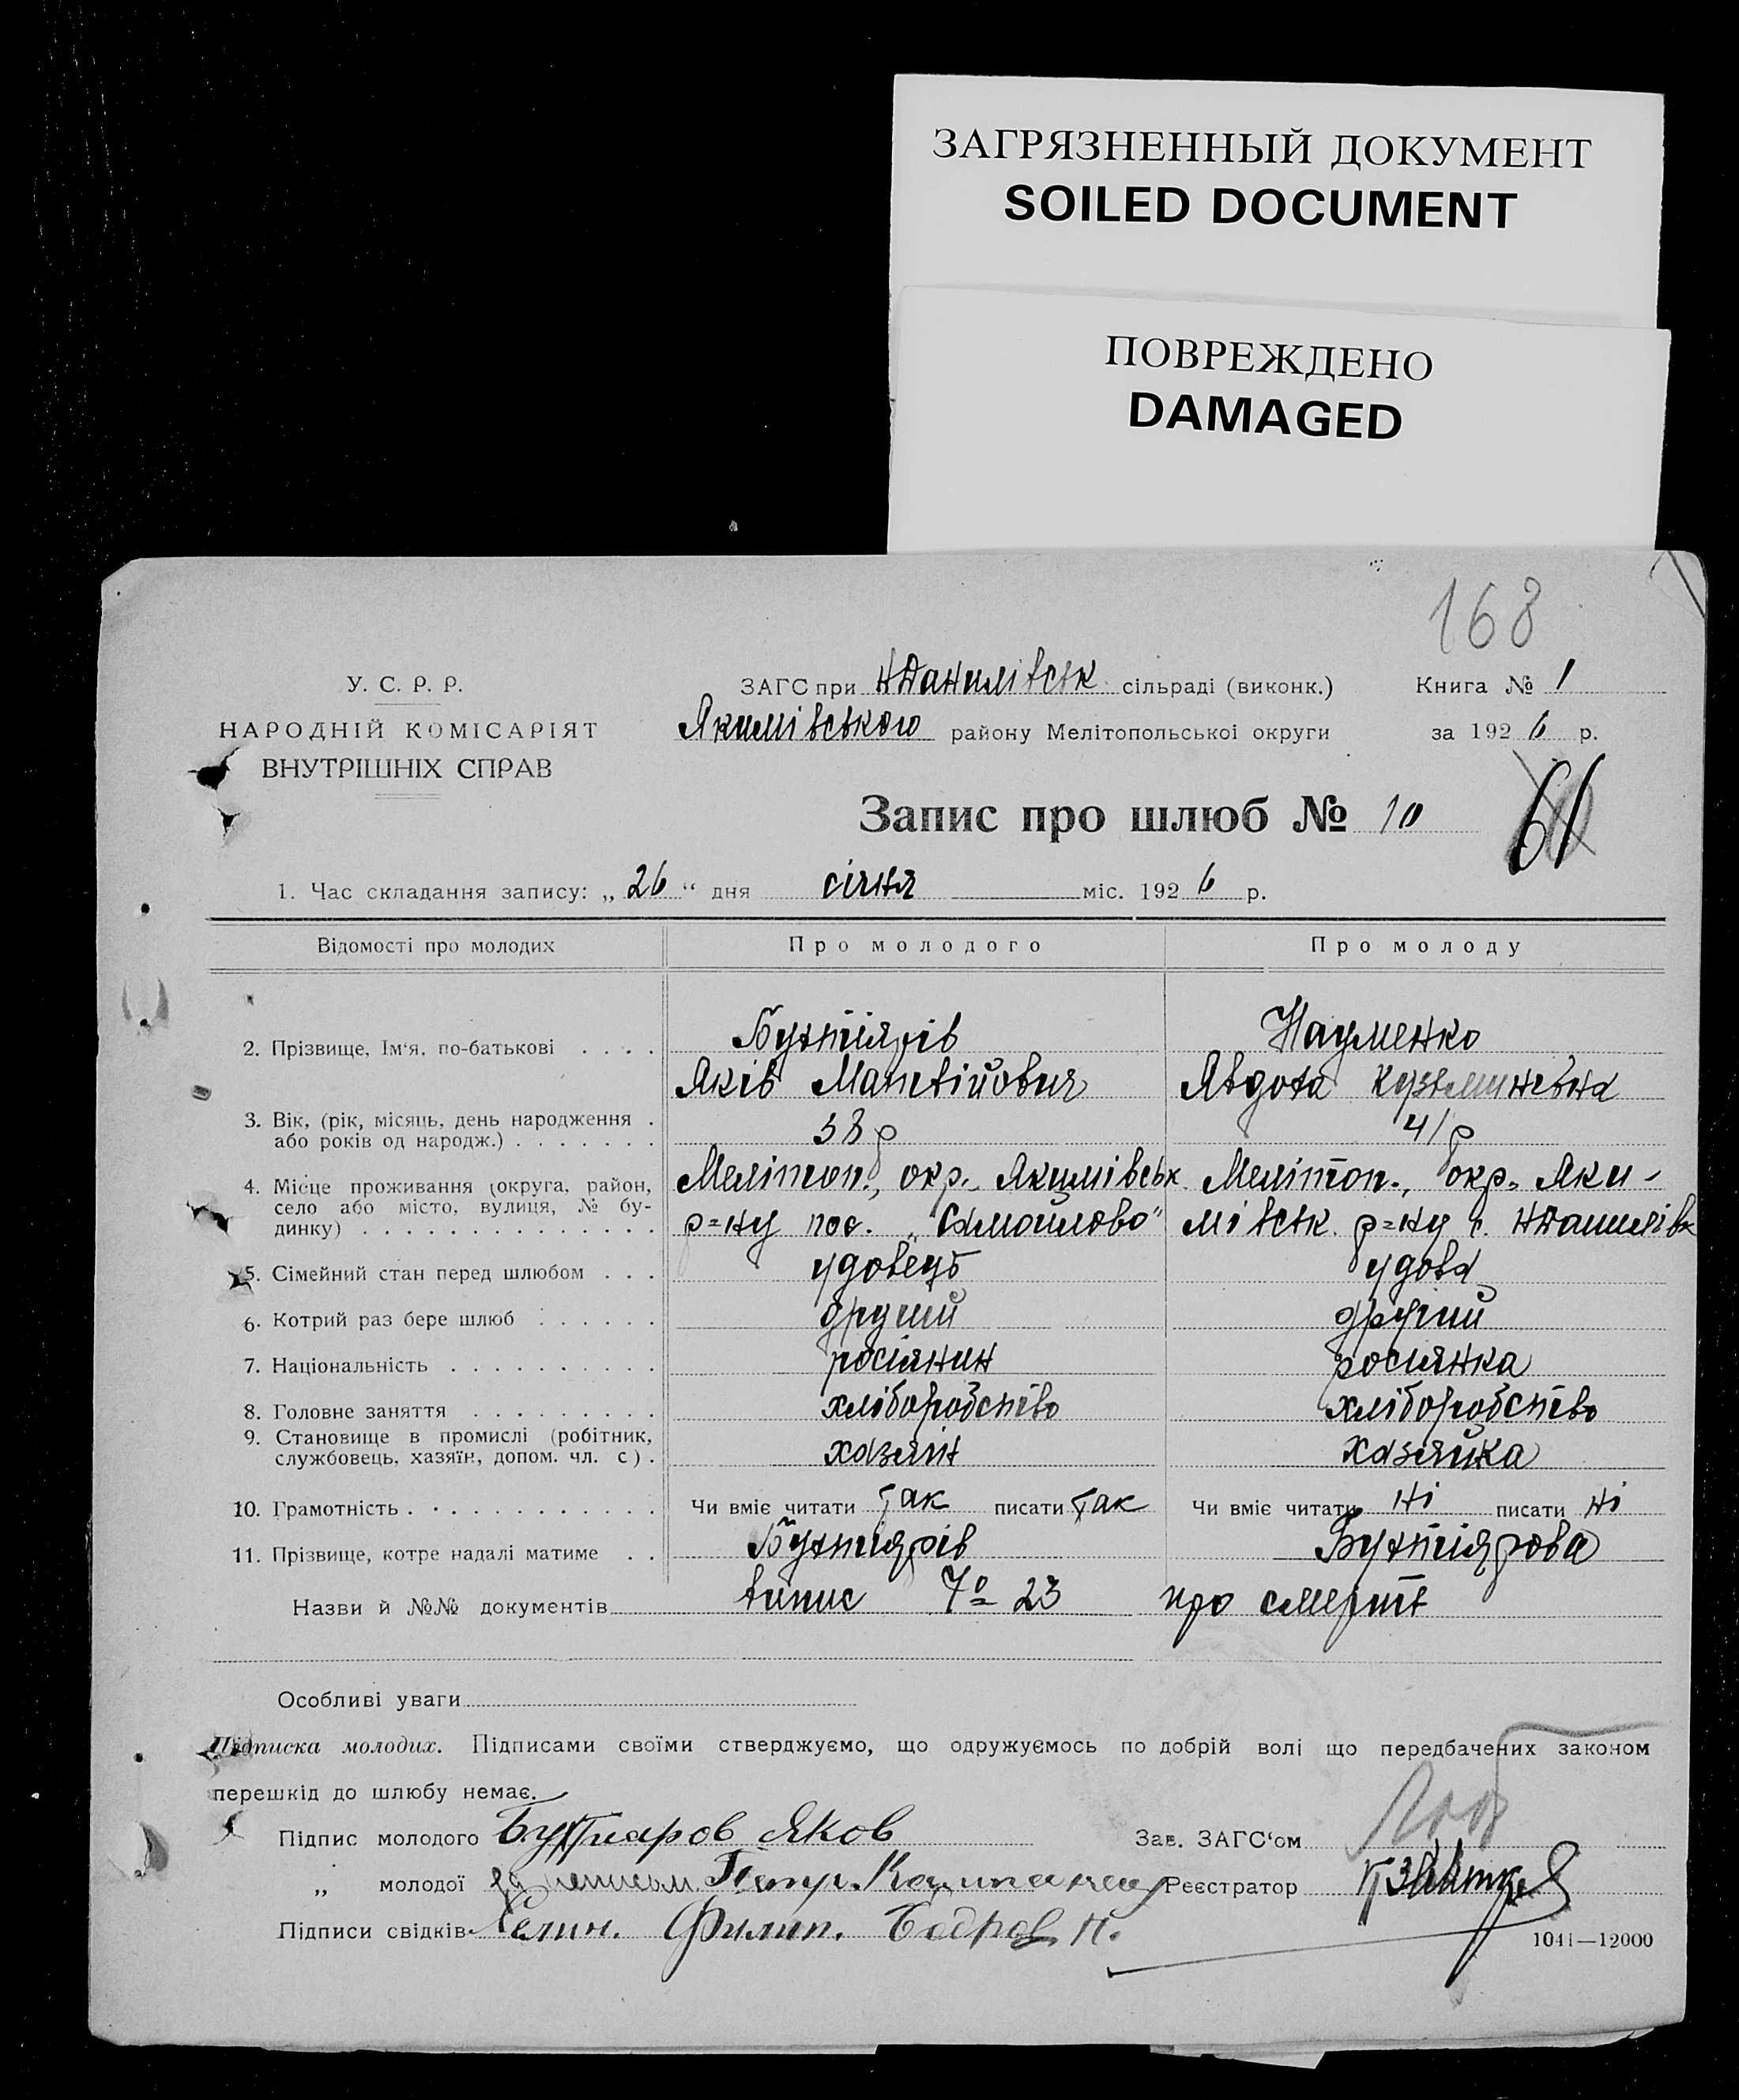 ЗАГРЯЗНЕННЫЙ ДОКУМЕНТ
SOILED DOCUMENT
ПОВРЕЖДЕНО
DAMAGED
168
У. С. Р. Р.
НАРОДНІЙ КОМІСАРІЯТ
ВНУТРІШНІХ СПРАВ
ЗАГС при НДанилівськ сільраді (виконк.)
Якимівського району Мелітопольської округи
Книга № 1
за 1926 р.
Запис про шлюб № 10
61
1. Час складання запису: „26“ дня січня міс. 1926 р.
Відомості про молодих Про молодого Про молоду
2. Прізвище, Ім‘я, по-батькові . . . . Бухтіярів Науменко
Яків Матвійович Явдоха Кузьминевна
3. Вік, (рік, місяць, день народження . або років од народж.) . . . . . . . 38 р 41 р
4. Місце проживання (округа, район, Мелітоп., окр., Якимівськ Мелітоп., окр. Яки-
село або місто, вулиця, № бу- р=ну пос. „Самойлово“ мівськ. р=ну с. НДанилівк
динку) . . . . . . . . . . . . . .
5. Сімейний стан перед шлюбом . . . удовець удова
6. Котрий раз бере шлюб . . . . . . другий другий
7. Національність . . . . . . . . . . росіянин росиянка
8. Головне заняття . . . . . . . . . хліборобство хліборобство
9. Становище в промислі (робітник,
службовець, хазяїн, допом. чл. с) . хазяїн хазяйка
10. Грамотність . . . . . . . . . . . . Чи вміє читати так писати так Чи вміє читати ні писати ні
11. Прізвище, котре надалі матиме . . Бухтіярів Бухтіярова
Назви й №№ документів випис № 23 про смерть
Особливі уваги
Підписка молодих. Підписами своїми стверджуємо, що одружуємось по добрій волі що передбачених законом
перешкід до шлюбу немає.
Підпис молодого Бухтиаров Яков Зав. ЗАГС‘ом
„ молодої Петр. Реєстратор
Підписи свідків Филип. Бодров Н.
1041—12000